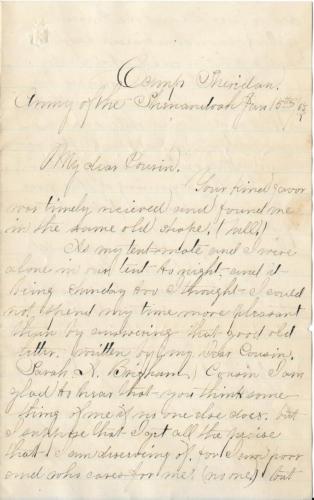 Camp Sheridan.
Army of the Shenandoah Jan 15th/65
My dear Cousin.
Your kind favor
was timely recieved and found me
in the same old
As my tentmate and I were
alone in our tent to night, and it
being Sunday too I thought I could
not spend my time more pleasant
than by answering that good old
letter. (written by my Dear Cousin.
Sarah A. Bingham.) Cousin I am
glad to hear that you think some
thing of me if no one else does. but
I suppose that I get all the praise
that I am deserving of. for I am poor
and who cares for me? (no one) but